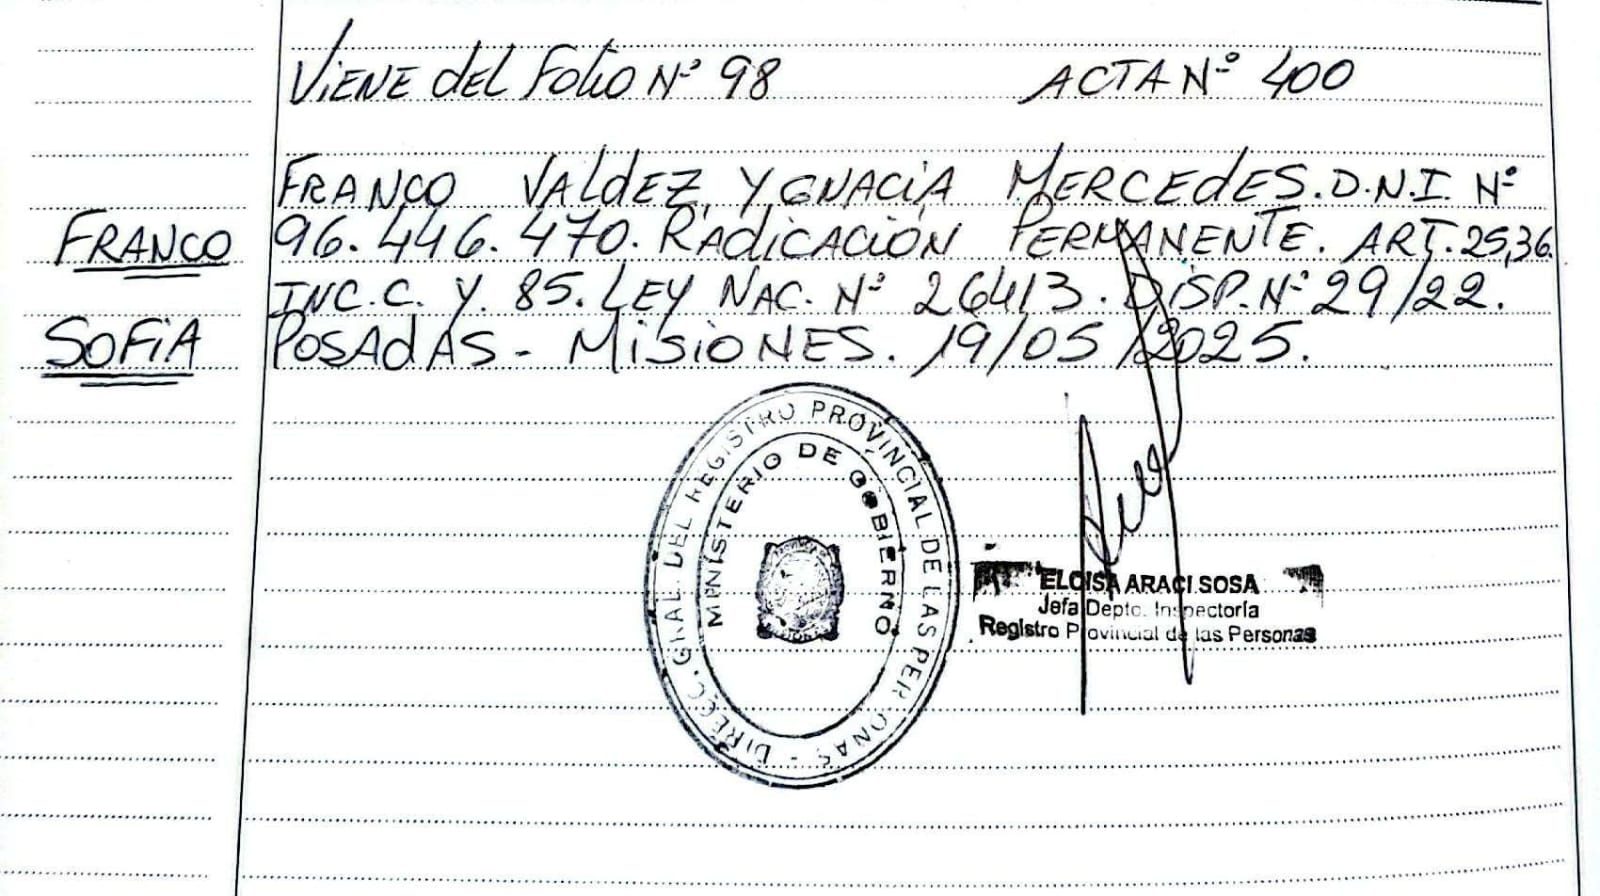 Viene del Folio Nº 98 ACTA Nº 400
FRANCO VALdEZ, YGNACiA MERCEdES. D.N.I. Nº
FRANCO 96.446.470. RAdiCACiÓN PERMANENTE. ART. 25,36.
INC. C. Y. 85. LEY NAC. Nº 26413. DiSP. Nº 29/22.
SOFiA POSAdAS - MiSiONES. 19/05/2025.
DIRECC. GRAL. DEL REGISTRO PROVINCIAL DE LAS PERSONAS -
MINISTERIO DE GOBIERNO
ELOISA ARACI SOSA
Jefa Depto. Inspectoría
Registro Provincial de las Personas